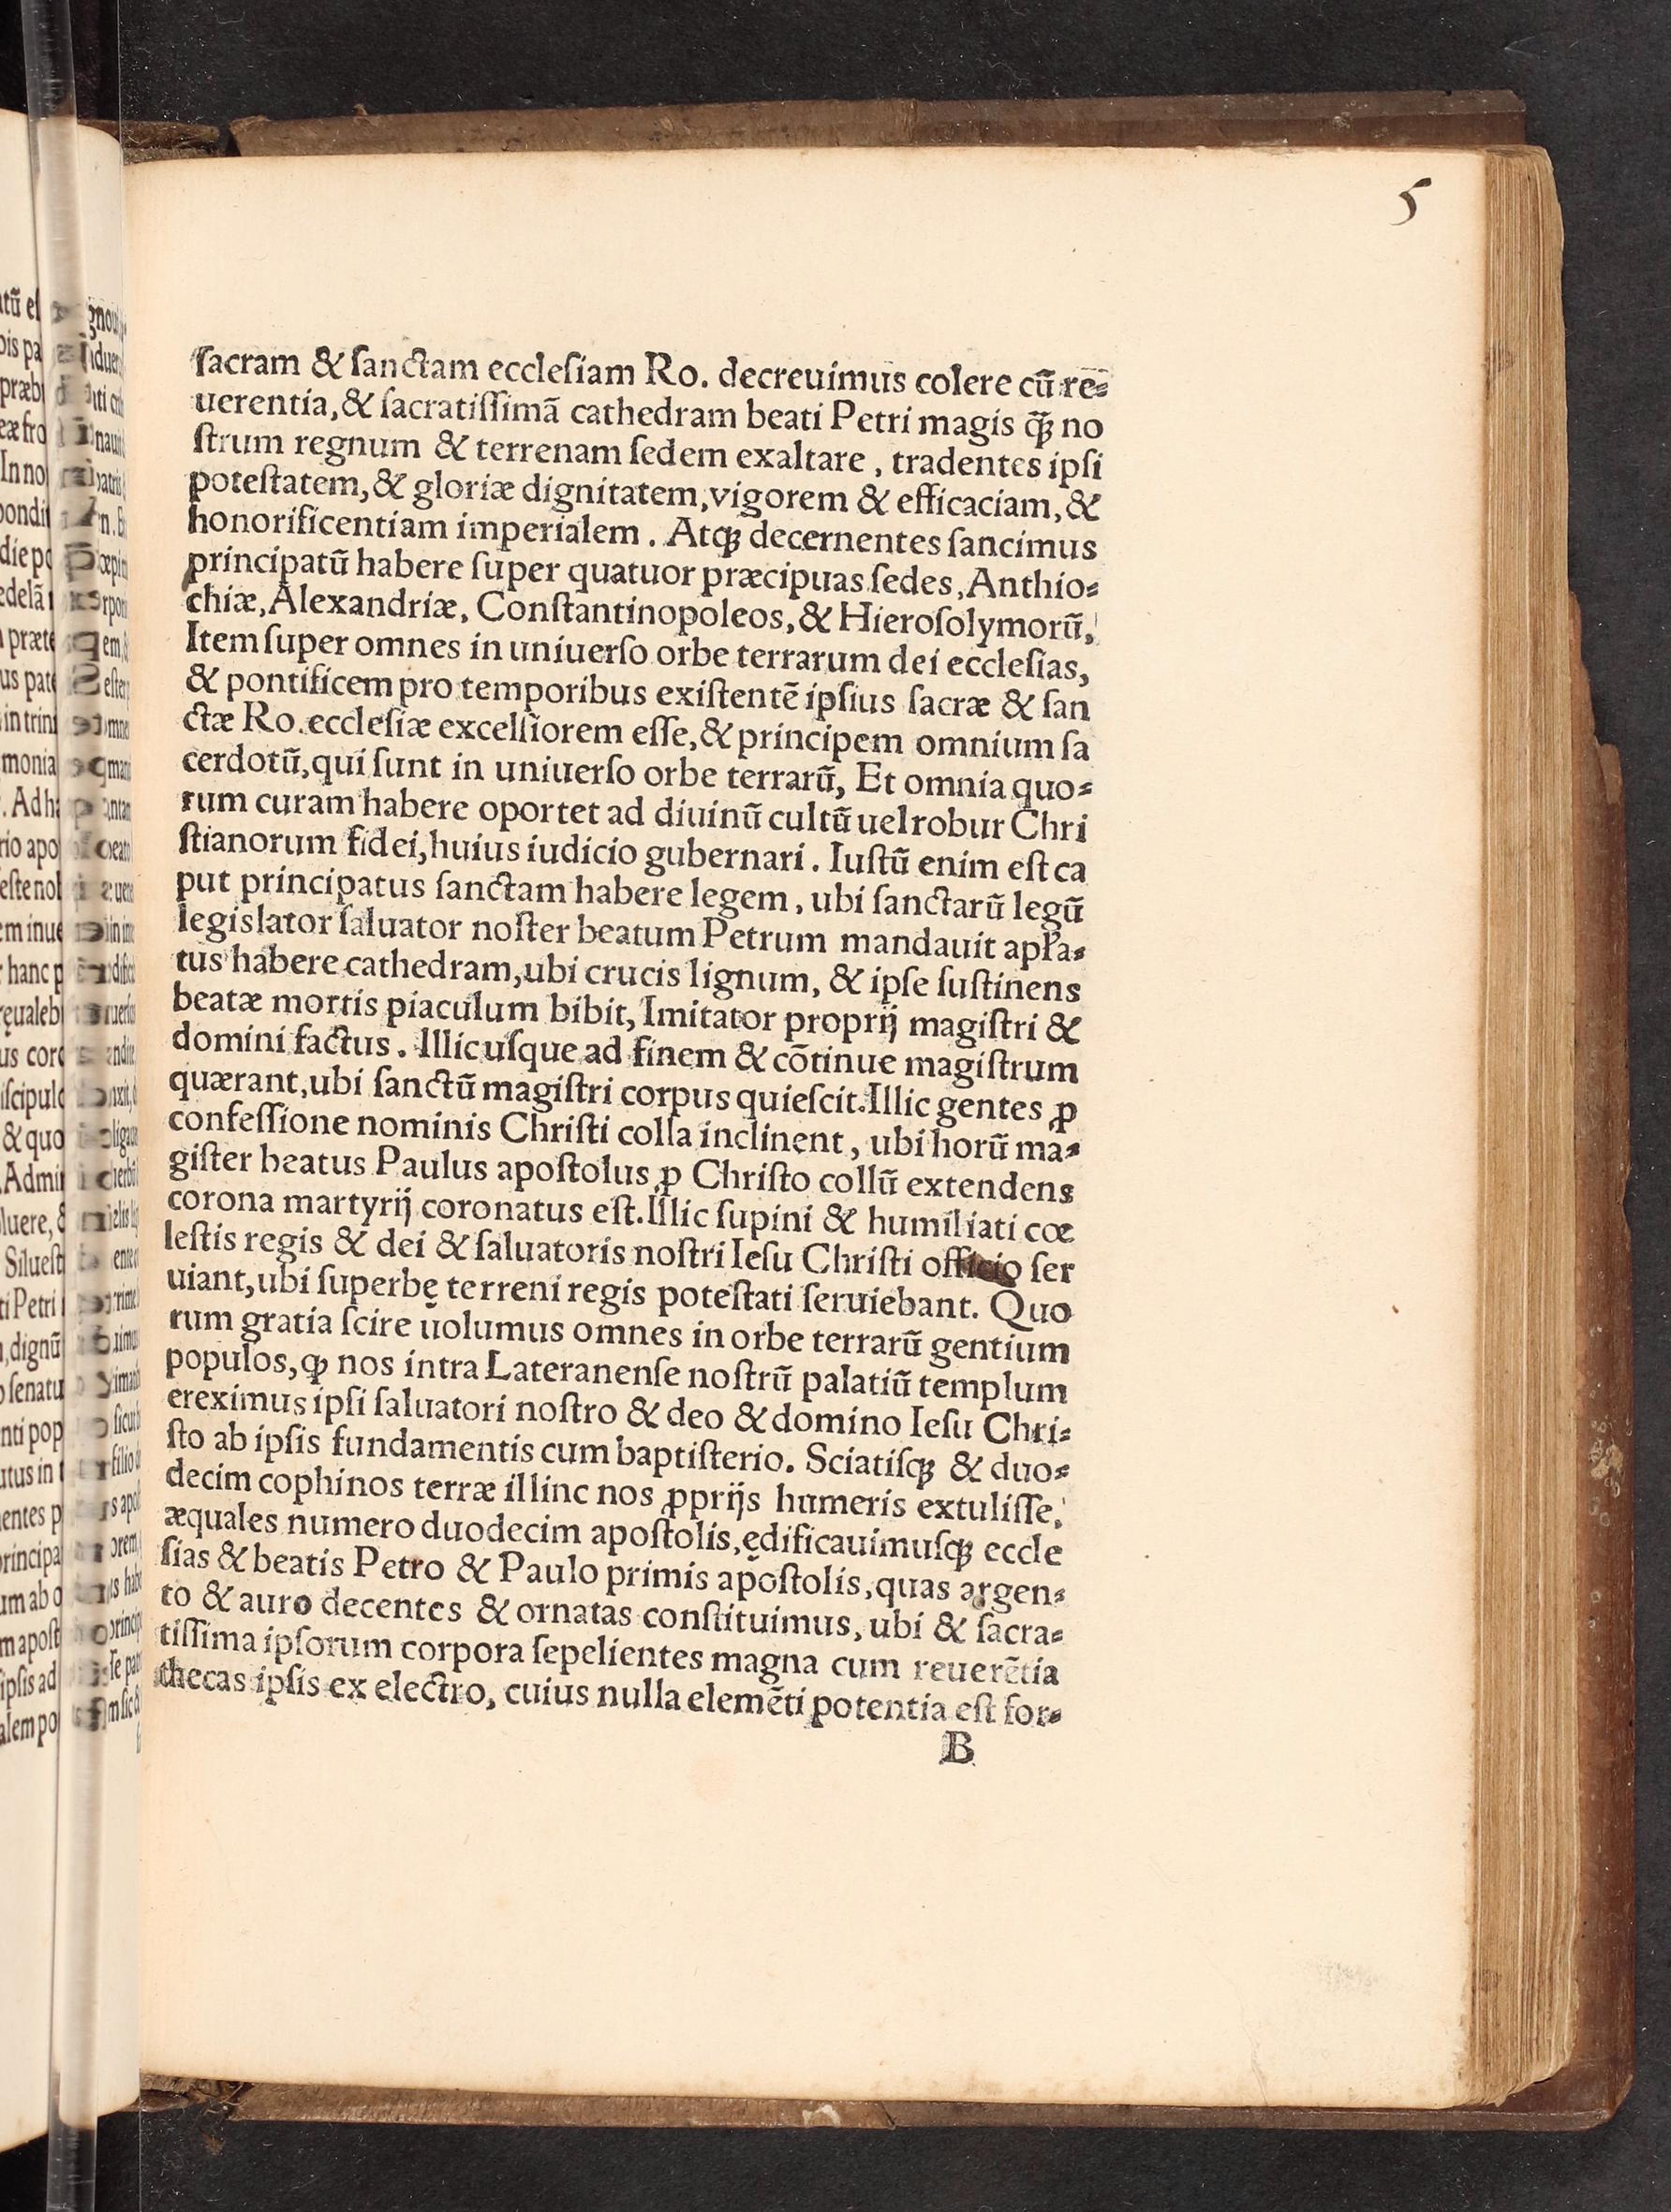 5
ſacram & ſanctam eccleſiam Ro. decreuimus colere cũ re⸗
uerentia, & ſacratiſſimã cathedram beati Petri magis q̃ꝫ no
ſtrum regnum & terrenam ſedem exaltare, tradentes ipſi
poteſtatem, & gloriæ dignitatem, vigorem & efficaciam, &
honorificentiam imperialem. Atqꝫ decernentes ſancimus
principatũ habere ſuper quatuor præcipuas ſedes, Anthio⸗
chiæ, Alexandriæ, Conſtantinopoleos, & Hieroſolymorũ,
Item ſuper omnes in uniuerſo orbe terrarum dei eccleſias,
& pontificem pro temporibus exiſtentẽ ipſius ſacræ & ſan
ctæ Ro. eccleſiæ excelſiorem eſſe, & principem omnium ſa
cerdotũ, qui ſunt in uniuerſo orbe terrarũ, Et omnia quo⸗
rum curam habere oportet ad diuinũ cultũ uel robur Chri
ſtianorum fidei, huius iudicio gubernari. Iuſtũ enim eſt ca
put principatus ſanctam habere legem, ubi ſanctarũ legũ
legislator ſaluator noſter beatum Petrum mandauit apl̃a⸗
tus habere cathedram, ubi crucis lignum, & ipſe ſuſtinens
beatæ mortis piaculum bibit, Imitator proprij magiſtri &
domini factus. Illic uſque ad finem & cõtinue magiſtrum
quærant, ubi ſanctũ magiſtri corpus quieſcit. Illic gentes ꝓ
confeſſione nominis Chriſti colla inclinent, ubi horũ ma⸗
giſter beatus Paulus apoſtolus ꝓ Chriſto collũ extendens
corona martyrij coronatus eſt. Illic ſupini & humiliati cœ
leſtis regis & dei & ſaluatoris noſtri Ieſu Chriſti officio ſer
uiant, ubi ſuperbę terreni regis poteſtati ſeruiebant. Quo
rum gratia ſcire uolumus omnes in orbe terrarũ gentium
populos, qꝫ nos intra Lateranenſe noſtrũ palatiũ templum
ereximus ipſi ſaluatori noſtro & deo & domino Ieſu Chri⸗
ſto ab ipſis fundamentis cum baptiſterio. Sciatiſqꝫ & duo⸗
decim cophinos terræ illinc nos ꝓprijs humeris extuliſſe,
æquales numero duodecim apoſtolis, ędificauimuſqꝫ eccle
ſias & beatis Petro & Paulo primis apoſtolis, quas argen⸗
to & auro decentes & ornatas conſtituimus, ubi & ſacra⸗
tiſſima ipſorum corpora ſepelientes magna cum reuerẽtia
thecas ipſis ex electro, cuius nulla elemẽti potentia eſt for⸗
B